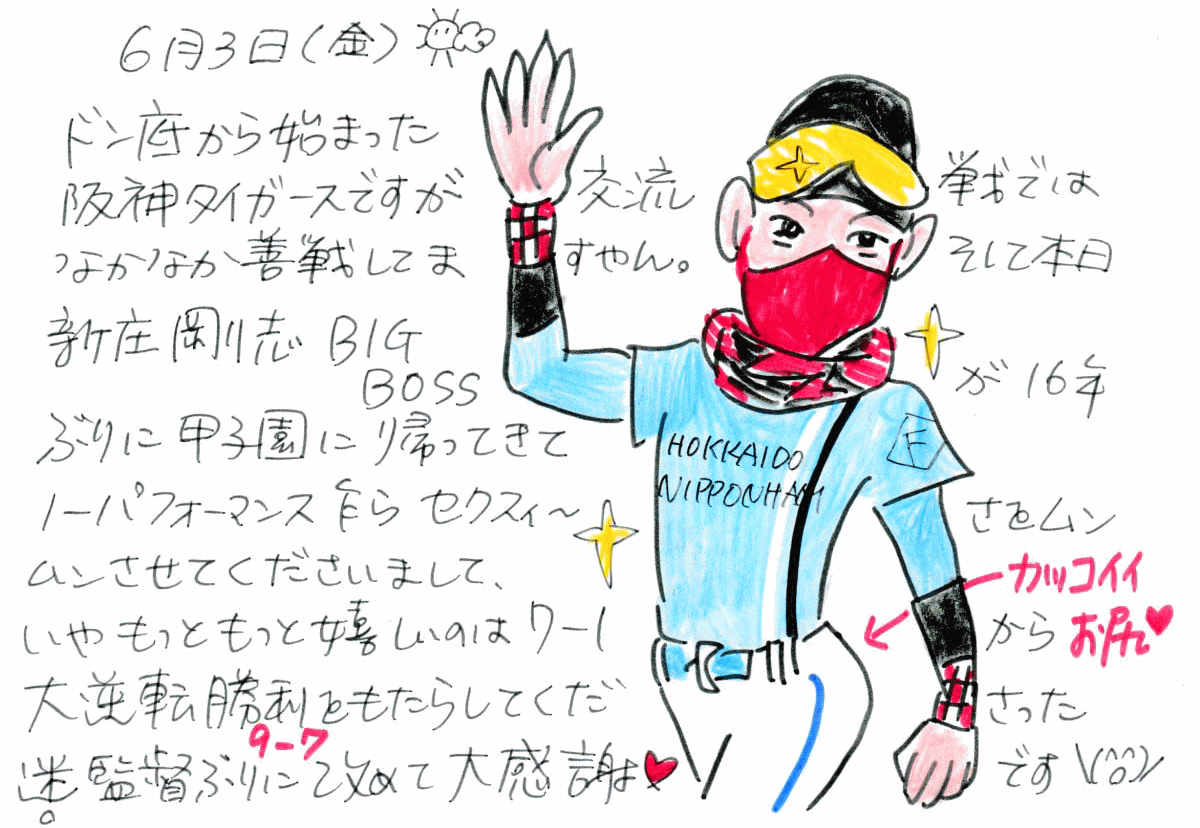 6月3日(金)
ドン底から始まった
阪神タイガースですが 交流 戦では
なかなか善戦してま すやん。 そして本日
新庄剛志 BIG
BOSS が16年
ぶりに甲子園に帰ってきて
HOKKAIDO
NIPPONHAM
F
ノーパフォーマンス乍らセクスィ〜 さをムン
ムンさせてくださいまして、
カッコイイ
お尻♥
いやもっともっと嬉しいのは7ー1 から
大逆転勝利をもたらしてくだ さった
9-7
迷監督ぶりに改めて大感謝♥ です\(^o^)/